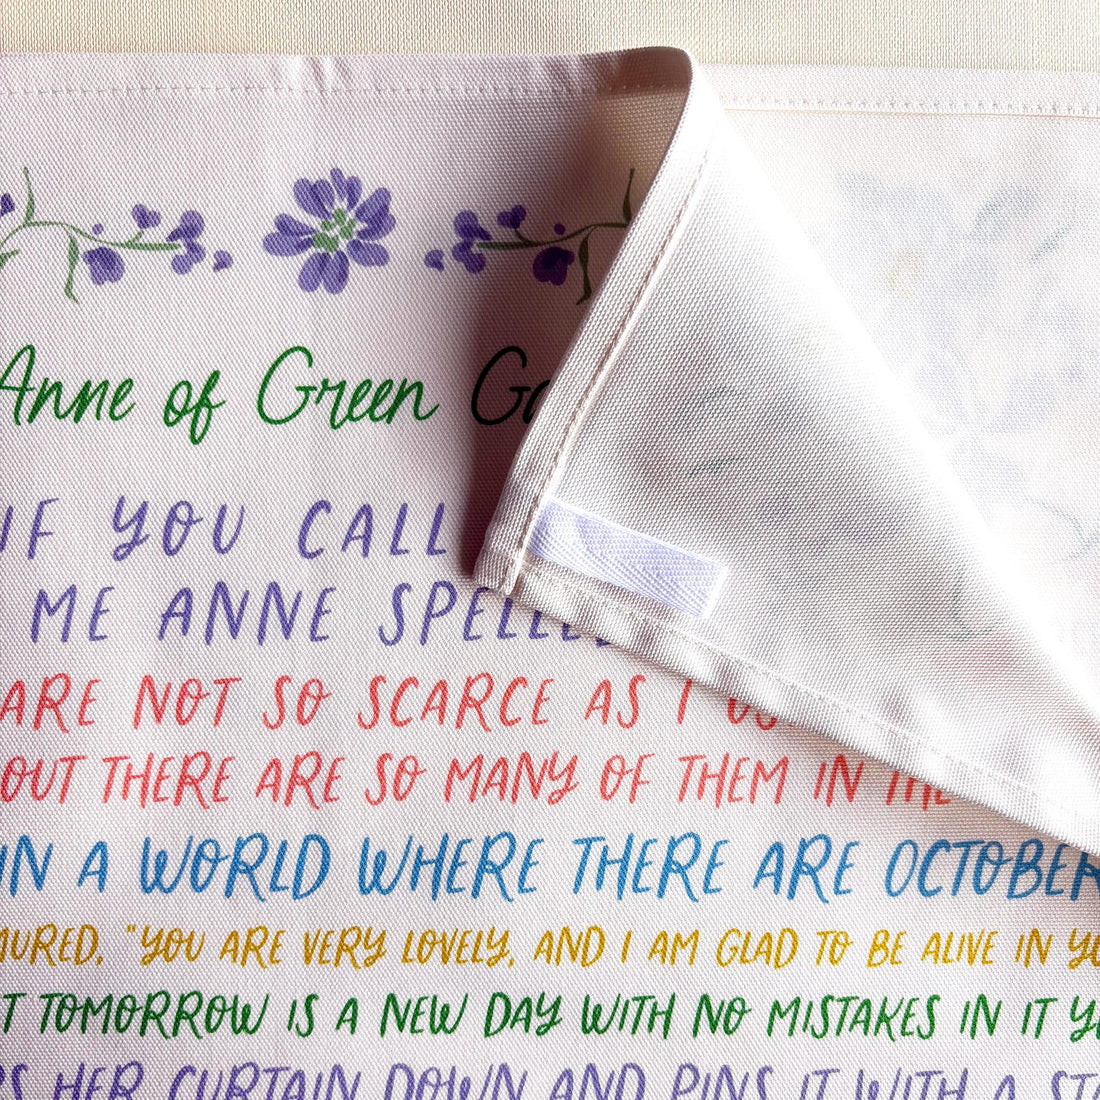 Anne of Green
IF YOU CALL
ME ANNE SPELLED
ARE NOT SO SCARCE AS I
OUT THERE ARE SO MANY OF THEM IN THE
IN A WORLD WHERE THERE ARE OCTOBER
"YOU ARE VERY LOVELY, AND I AM GLAD TO BE ALIVE IN
TOMORROW IS A NEW DAY WITH NO MISTAKES IN IT
HER CURTAIN DOWN AND PINS IT WITH A